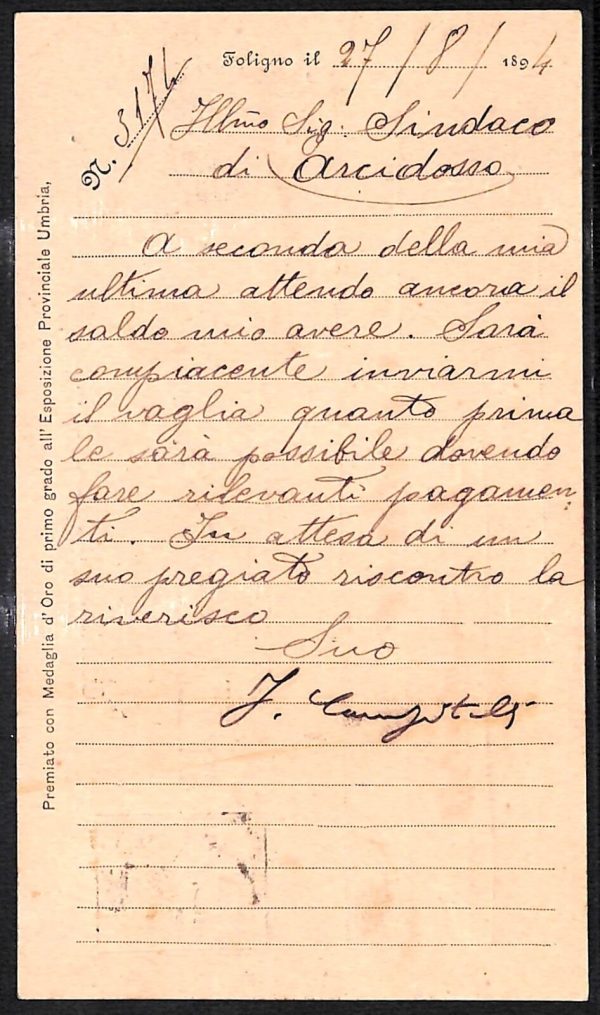 Foligno il 27/8/1894
N. 3174
Illmo Sig. Sindaco
di Arcidosso
A seconda della mia
ultima attendo ancora il
saldo mio avere. Sarà
compiacente inviarmi
il vaglia quanto prima
le sarà possibile dovendo
fare rilevanti pagamen-
ti. In attesa di un
suo pregiato riscontro la
riverisco
Suo
Premiato con Medaglia d'Oro di primo grado all'Esposizione Provinciale Umbria,